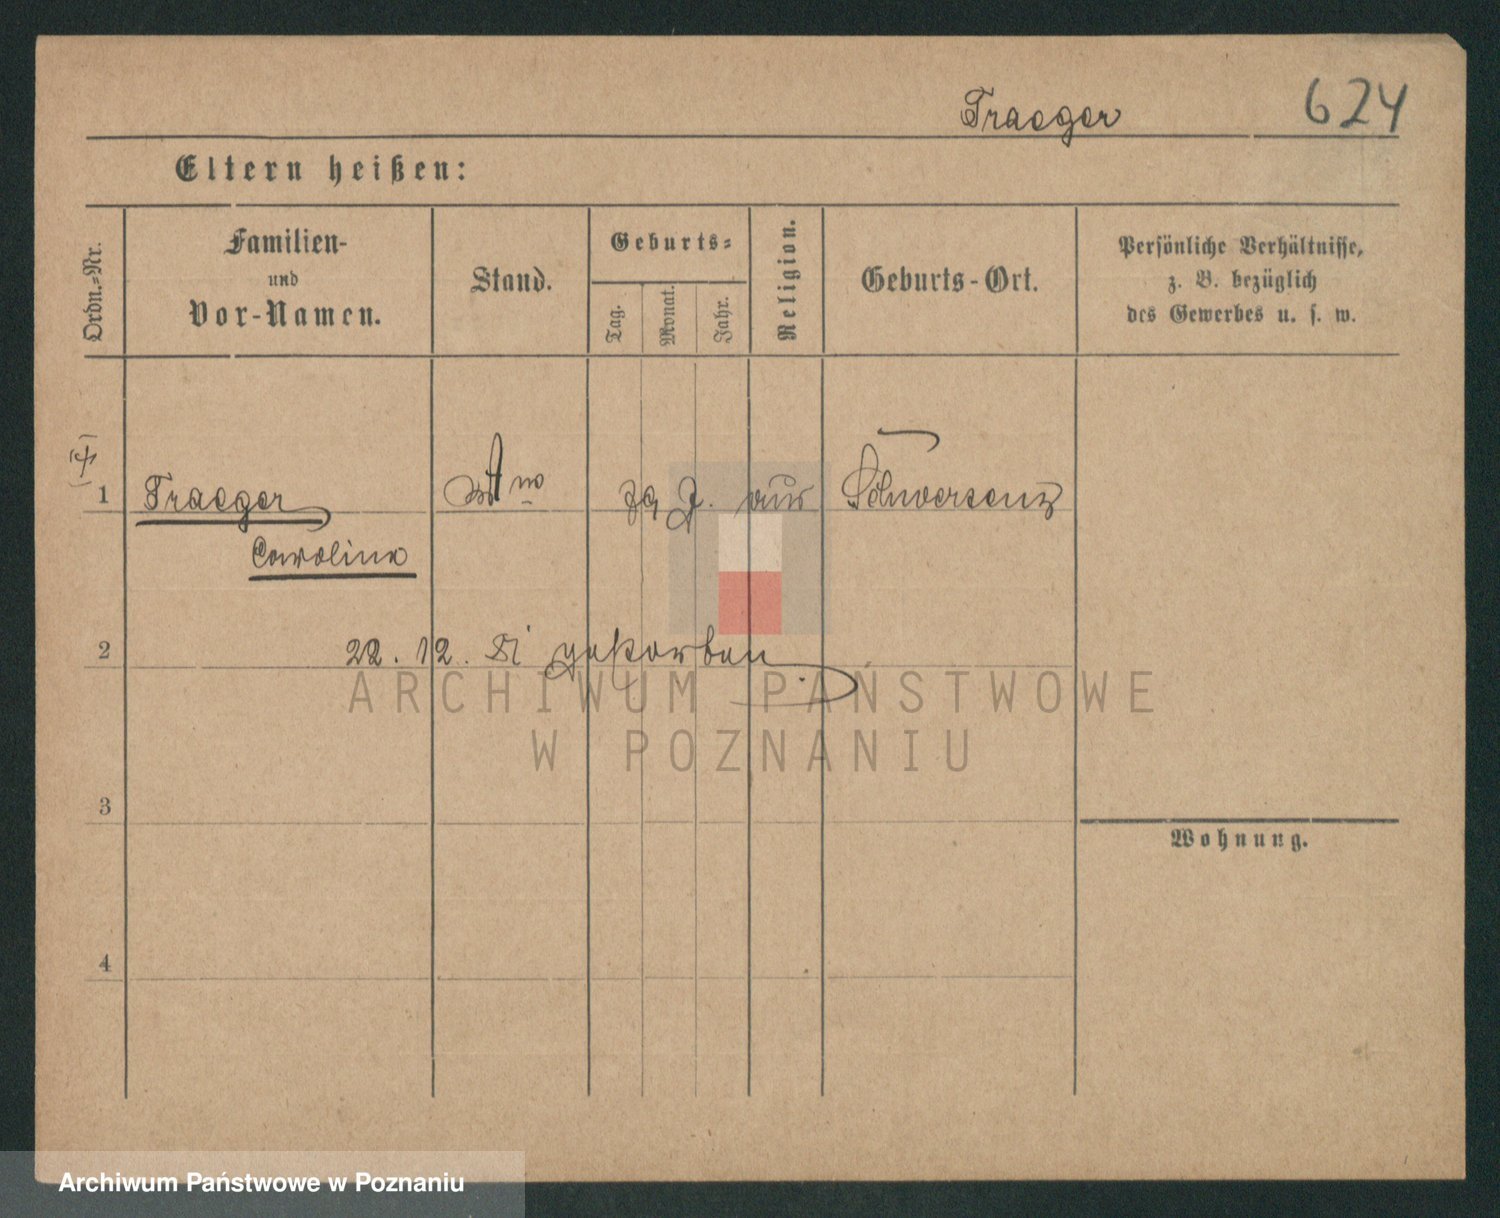 Traeger 624
Eltern heißen:
Ordn.=Nr.
Familien-
und
Vor-Namen.
Stand.
Geburts=
Tag.
Monat.
Jahr.
Religion.
Geburts-Ort.
Persönliche Verhältnisse,
z. B. bezüglich
des Gewerbes u. s. w.
1 Traeger aus Schwersenz
Caroline
2 22. 12. 81 gestorben
3
Wohnung.
4
ARCHIWUM PAŃSTWOWE
W POZNANIU
Archiwum Państwowe w Poznaniu